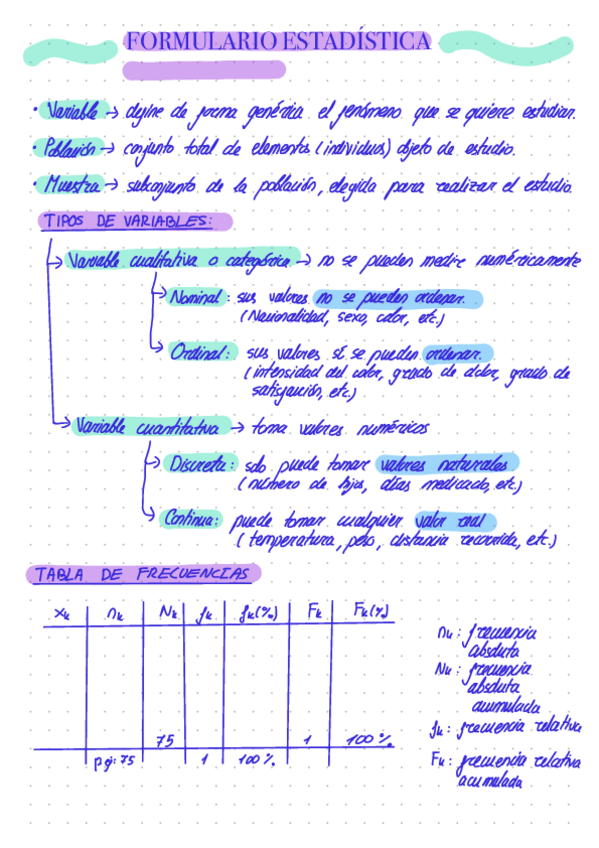 FORMULARIO ESTADÍSTICA
• Variable → define de forma genérica el fenómeno que se quiere estudiar.
• Población → conjunto total de elementos (individuos) objeto de estudio.
• Muestra → subconjunto de la población, elegida para realizar el estudio.
TIPOS DE VARIABLES:
→ Variable cualitativa o categórica → no se pueden medir numéricamente
→ Nominal: sus valores no se pueden ordenar.
(Nacionalidad, sexo, color, etc.)
→ Ordinal: sus valores sí se pueden ordenar.
(intensidad del color, grado de dolor, grado de
satisfacción, etc.)
→ Variable cuantitativa → toma valores numéricos
→ Discreta: solo puede tomar valores naturales
(número de hijos, días medicado, etc.)
→ Continua: puede tomar cualquier valor real
(temperatura, peso, distancia recorrida, etc.)
TABLA DE FRECUENCIAS
xk nk Nk fk fk(%) Fk Fk(%)
75 1 100%
p.ej: 75 1 100%
nk: frecuencia
absoluta
Nk: frecuencia
absoluta
acumulada
fk: frecuencia relativa
Fk: frecuencia relativa
acumulada